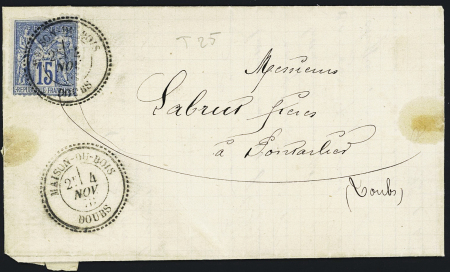 T 25
15
MAISON-DU-BOIS
2E 4
NOV
DOUBS
Messieurs
Labrut frères
à Pontarlier
(Doubs)
MAISON-DU-BOIS
2E 4
NOV
DOUBS